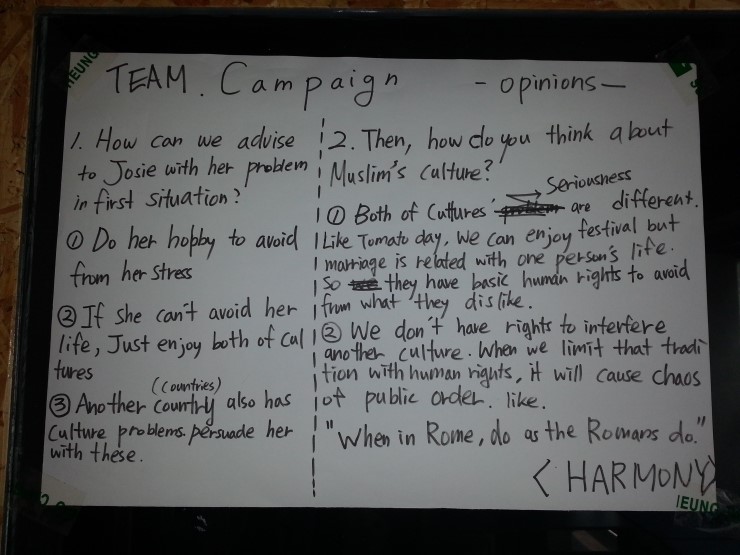 TEAM. Campaign - opinions -
1. How can we advise
to Josie with her problem
in first situation?
① Do her hobby to avoid
from her stress
② If she can't avoid her
life, Just enjoy both of Cul
tures
(Countries)
③ Another Country also has
Culture problems. persuade her
with these.
2. Then, how do you think about
Muslim's culture?
Seriousness
① Both of Cultures' problem are different.
Like Tomato day, We can enjoy festival but
marriage is related with one person's life.
So they have basic human rights to avoid
from what they dislike.
② We don't have rights to interfere
another culture. When we limit that tradi
tion with human rights, it will cause chaos
of public order. like.
"When in Rome, do as the Romans do."
< HARMONY>
IEUNG
IEUNG